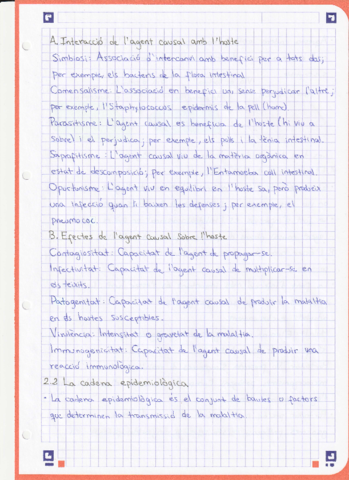 A. Interacció de l'agent causal amb l'hoste
Simbiosi: Associació d'intercanvi amb benefici per a tots dos;
per exemple, els bacteris de la flora intestinal
Comensalisme: L'associació en benefici un sense perjudicar l'altre;
per exemple, l'Staphylococcus epidermis de la pell (humà)
Parasitisme: L'agent causal es beneficia de l'hoste (hi viu a
sobre) i el perjudica; per exemple, els polls i la tènia intestinal.
Saprofitisme: L'agent causal viu de la matèria orgànica en
estat de descomposició; per exemple, l'Entamoeba coli intestinal.
Oportunisme: L'agent viu en equilibri en l'hoste sa, però produeix
una infecció quan li baixen les defenses; per exemple, el
pneumococ.
B. Efectes de l'agent causal sobre l'hoste
Contagiositat: Capacitat de l'agent de propagar-se.
Infectivitat: Capacitat de l'agent causal de multiplicar-se en
els teixits.
Patogenitat: Capacitat de l'agent causal de produir la malaltia
en els hostes susceptibles.
Virulència: Intensitat o gravetat de la malaltia.
Immunogenicitat: Capacitat de l'agent causal de produir una
reacció immunològica.
2.2 La cadena epidemiològica
· La cadena epidemiològica és el conjunt de baules o factors
que determinen la transmissió de la malaltia